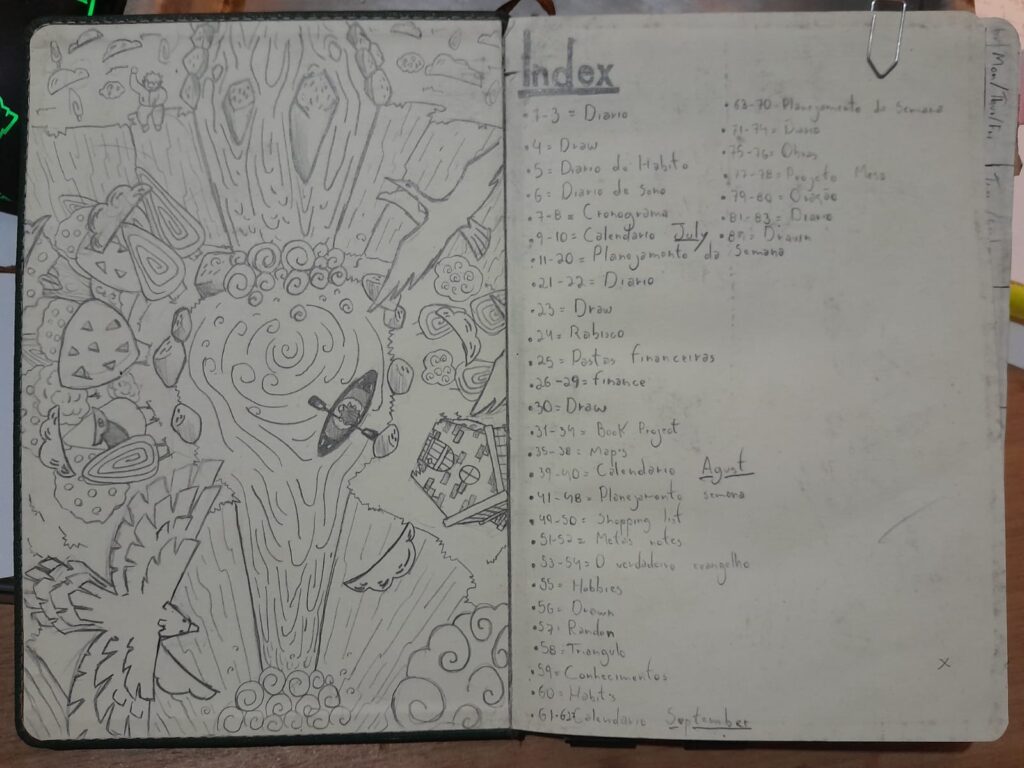 Index
•1-3 = Diario
•4 = Draw
•5 = Diario de Habito
•6 = Diario de Sono
•7-8 = Cronograma
•9-10 = Calendario July
•11-20 = Planejamento da Semana
•21-22 = Diário
•23 = Draw
•24 = Rabisco
•25 = Pastas financeiras
•26-29 = finance
•30 = Draw
•31-34 = Book Project
•35-38 = Map's
•39-40 = Calendario Agust
•41-48 = Planejamento semana
•49-50 = Shopping list
•51-52 = Metas notes
•53-54 = O verdadeiro evangelho
•55 = Hobbies
•56 = Drawn
•57 = Randon
•58 = Triangulo
•59 = Conhecimentos
•60 = Habits
•61-62 = Calendario September
•63-70 = Planejamento da Semana
•71-74 = Diario
•75-76 = Obras
•77-78 = Projeto Mesa
•79-80 = Oração
•81-83 = Diario
Drawn
x